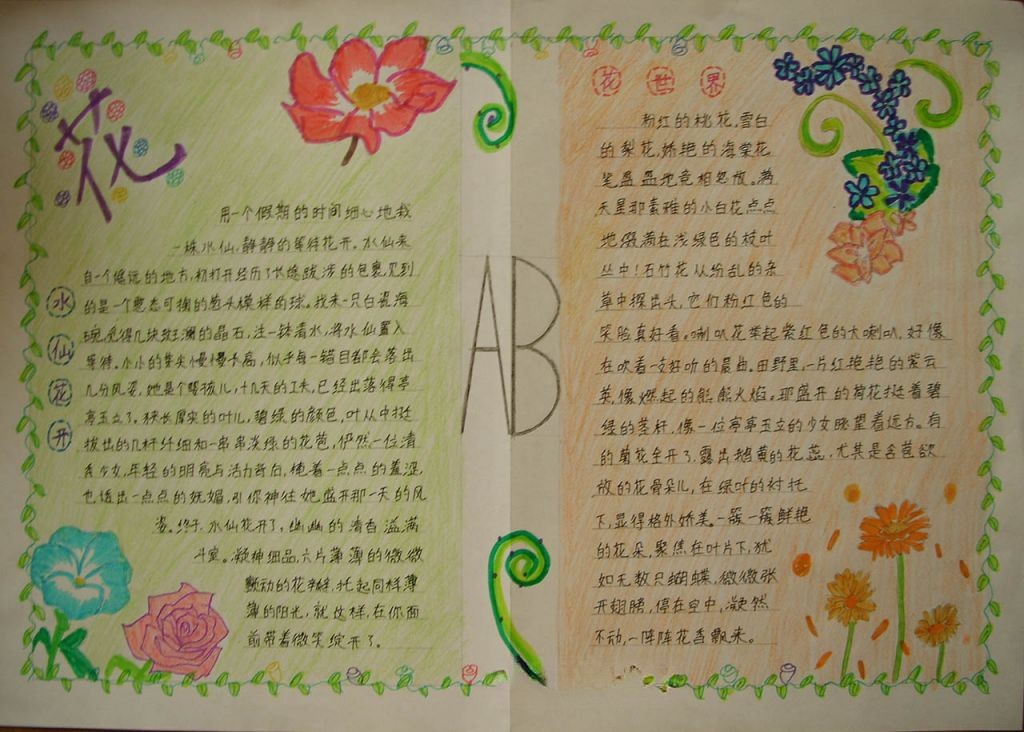 花
水仙花开
用一个假期的时间细心地栽
一株水仙,静静的等待花开。水仙来
自一个偏远的地方,初打开经历了长途跋涉的包裹,见到
的是一个憨态可掬的葱头模样的球。我未一只白瓷海
碗,觅得几块斑斓的晶石,注一钵清水,将水仙置入
等待。小小的芽尖慢慢长高,似乎每一错目都会落出
几分风姿。她是个婴孩儿,十几天的工夫,已经出落得亭
亭玉立了。狭长厚实的叶儿,碧绿的颜色,叶从中挺
拔出的几杆纤细和一串串淡绿的花苞,俨然一位清
秀少女,年轻的明亮与活力背后,掩着一点点的羞涩,
也透出一点点的妩媚,引你神往她盛开那一天的风
姿。终于,水仙花开了,幽幽的清香溢满
斗室。凝神细品,六片薄薄的微微
颤动的花瓣,托起同样薄
薄的阳光,就这样,在你面
前带着微笑绽开了。
AB
花世界
粉红的桃花,雪白
的梨花,娇艳的海棠花
笑盈盈地竞相怒放。满
天星那素雅的小白花点点
地缀满在浅绿色的枝叶
丛中!石竹花从纷乱的杂
草中探出头,它们粉红色的
笑脸真好看。喇叭花举起紫红色的大喇叭,好像
在吹着一支好听的晨曲。田野里,一片红艳艳的紫云
英,像燃起的熊熊火焰。那盛开的荷花挺着碧
绿的茎杆,像一位亭亭玉立的少女眺望着远方。有
的菊花全开了,露出鹅黄的花蕊,尤其是含苞欲
放的花骨朵儿,在绿叶的衬托
下,显得格外娇美。一簇一簇鲜艳
的花朵,聚焦在叶片下,犹
如无数只蝴蝶,微微张
开翅膀,停在空中,凝然
不动,一阵阵花香飘来。